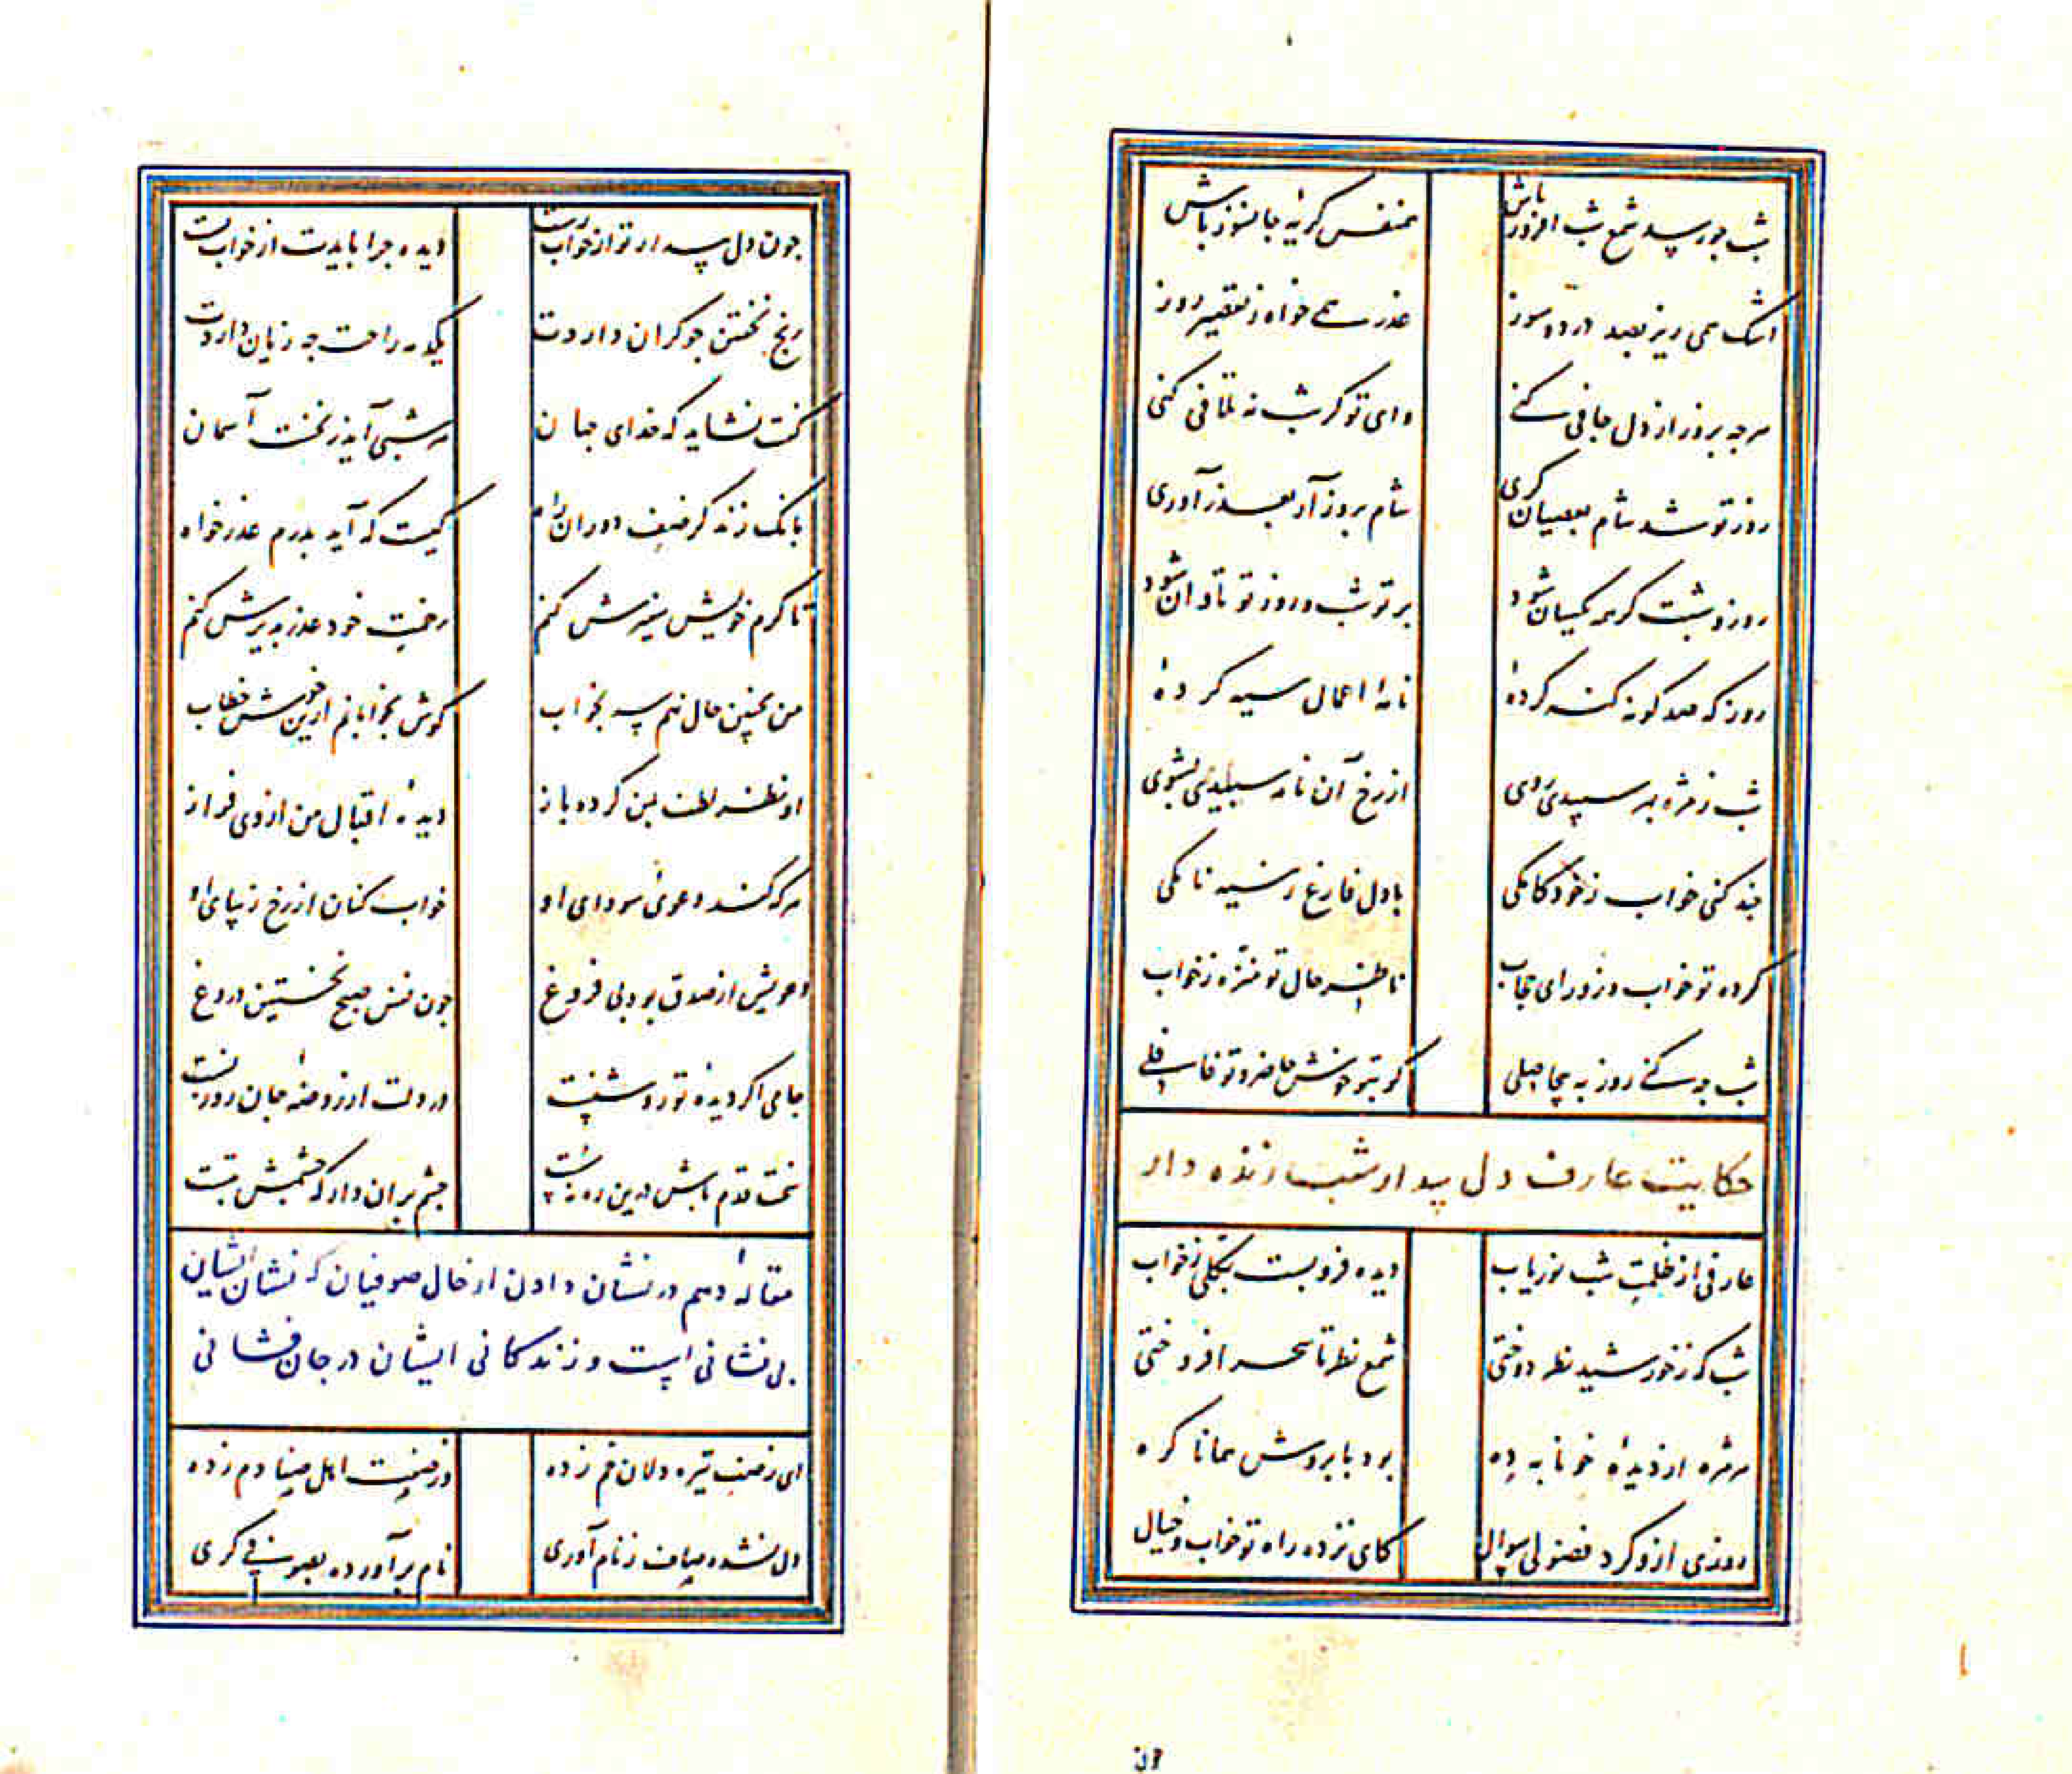 شب چو رسد شمع شب افروز باش همنفس گریهٔ جانسوز باش
اشک همی ریز بصد درد و سوز عذر همی خواه ز تقصیر روز
هرچه بروز از دل جافی کنی وای تو گر شب نه تلافی کنی
روز تو شد شام بعصیان گری شام بروز آر بعذر آوری
روز و شبت گر همه یکسان شود بر تو شب و روز تو تاوان شود
روز که صد گونه گنه کردهٔ نامهٔ اعمال سیه کردهٔ
شب ز مژه بهر سپیدی روی از رخ آن نامه سیاهی بشوی
چند کنی خواب ز خود کامگی با دل فارغ ز سیه نامگی
کرده تو خواب و ز ورای حجاب ناظر حال تو منزه ز خواب
شب چه کنی روز به بیحاصلی کو بتو خوش حاضر و تو غافلی
حکایت عارف دل بیدار شب زنده دار
عارفی از ظلمت شب نوریاب دیده فرو بست بکلی ز خواب
شب که ز خورشید نظر دوختی شمع نظر تا سحر افروختی
هر مژه از دیدهٔ خونابه ده بود بابروش همانا گره
روزی ازو کرد فضولی سوال کای نزده راه تو خواب و خیال
چون
چون دل بیدار تو از خواب رست دیده چرا بایدت از خواب بست
رنج نخفتن چو گران داردت یکدمه راحت چه زیان داردت
گفت نشاید که خدای جهان هر شبی آید ز نخست آسمان
بانگ زند کز ضعف دوران راه کیست که آید بدرم عذر خواه
تا کرم خویش پنیرش کنم رحمت خود عذر پذیرش کنم
من بچنین حال نهم سر بخواب گوش بخوابانم ازین خوش خطاب
او نظر لطف بمن کرده باز دیدهٔ اقبال من از وی فراز
هر که کند دعوی سودای او خواب کنان از رخ زیبای او
دعویش از صدق بود بی فروغ چون نفس صبح نخستین دروغ
جامی اگر دیدهٔ تو روشنست در دلت از روضهٔ جان روزنست
سخت قدم باش درین ره نه سست چشم بر آن دار که چشمش بتست
مقالهٔ دهم در نشان دادن از حال صوفیان که نشان ایشان
بی نشانی است و زندگانی ایشان در جان فشانی
ای ز صف تیره دلان خم زده در صفت اهل صفا دم زده
دل نشده صاف ز نام آوری نام بر آورده بصوفی گری